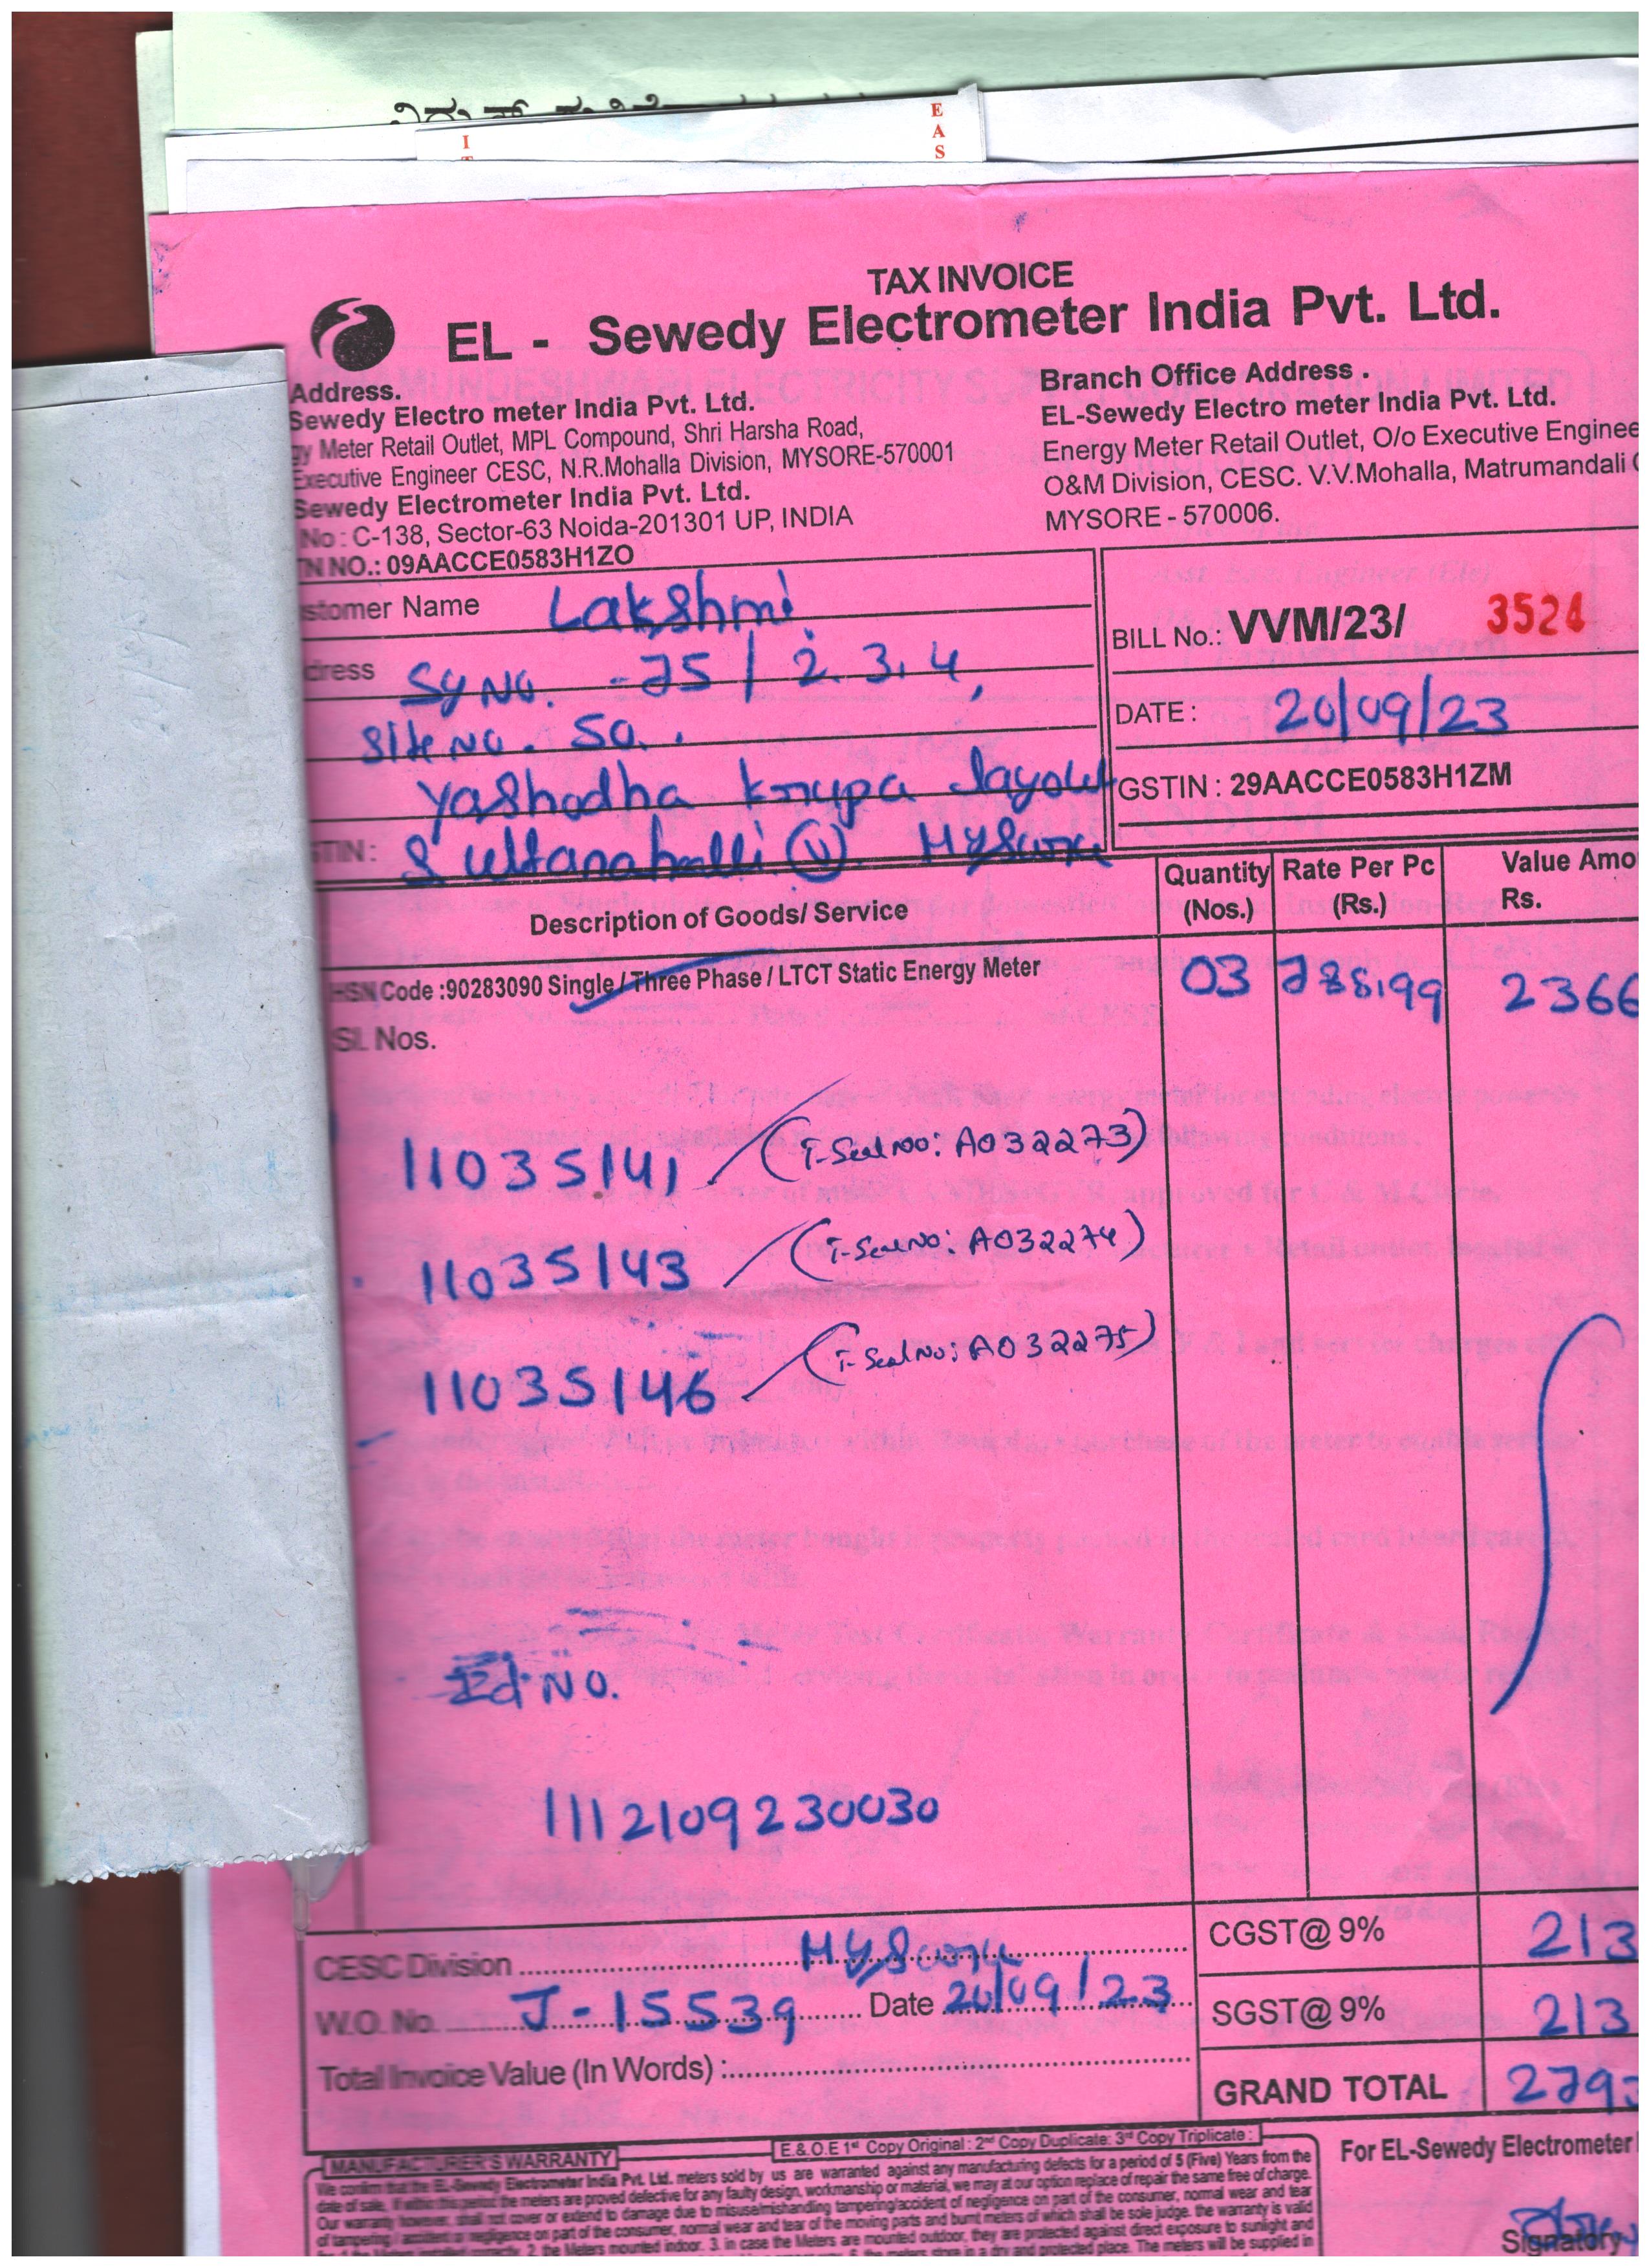 I
E
A
S
TAX INVOICE
EL - Sewedy Electrometer India Pvt. Ltd.
Address.
Sewedy Electro meter India Pvt. Ltd.
gy Meter Retail Outlet, MPL Compound, Shri Harsha Road,
Executive Engineer CESC, N.R.Mohalla Division, MYSORE-570001
Sewedy Electrometer India Pvt. Ltd.
No : C-138, Sector-63 Noida-201301 UP, INDIA
TN NO.: 09AACCE0583H1ZO
Branch Office Address .
EL-Sewedy Electro meter India Pvt. Ltd.
Energy Meter Retail Outlet, O/o Executive Enginee
O&M Division, CESC. V.V.Mohalla, Matrumandali
MYSORE - 570006.
stomer Name Lakshmi
dress Sy No. - 75 / 2. 3. 4,
Site No. 50.
Yashodha Krupa layout
STIN : Sultanahalli (V). Mysore
BILL No.: VVM/23/ 3524
DATE : 20/09/23
GSTIN : 29AACCE0583H1ZM
Description of Goods/ Service Quantity (Nos.) Rate Per Pc (Rs.) Value Amo Rs.
HSN Code :90283090 Single / Three Phase / LTCT Static Energy Meter 03 788.99 2366
Sl. Nos.
11035141 (T-Seal No: A032273)
11035143 (T-Seal No: A032274)
11035146 (T-Seal No: A032275)
Id No.
1112109230030
CESC Division Mysore
W.O. No. J-15539 Date 20/09/23
Total Invoice Value (In Words) :
CGST@ 9% 213
SGST@ 9% 213
GRAND TOTAL 279
E.& O.E 1st Copy Original : 2nd Copy Duplicate: 3rd Copy Triplicate :
MANUFACTURER'S WARRANTY
We confirm that the EL-Sewedy Electrometer India Pvt. Ltd. meters sold by us are warranted against any manufacturing defects for a period of 5 (Five) Years from the
date of sale. If within this period the meters are proved defective for any faulty design, workmanship or material, we may at our option replace of repair the same free of charge.
Our warranty however, shall not cover or extend to damage due to misuse/mishandling tampering/accident of negligence on part of the consumer, normal wear and tear
of tampering / accident or negligence on part of the consumer, normal wear and tear of the moving parts and burnt meters of which shall be sole judge. the warranty is valid
2. the Meters mounted indoor. 3. in case the Meters are mounted outdoor, they are protected against direct exposure to sunlight and
the meters store in a dry and protected place. The meters will be supplied in
For EL-Sewedy Electrometer
Signatory